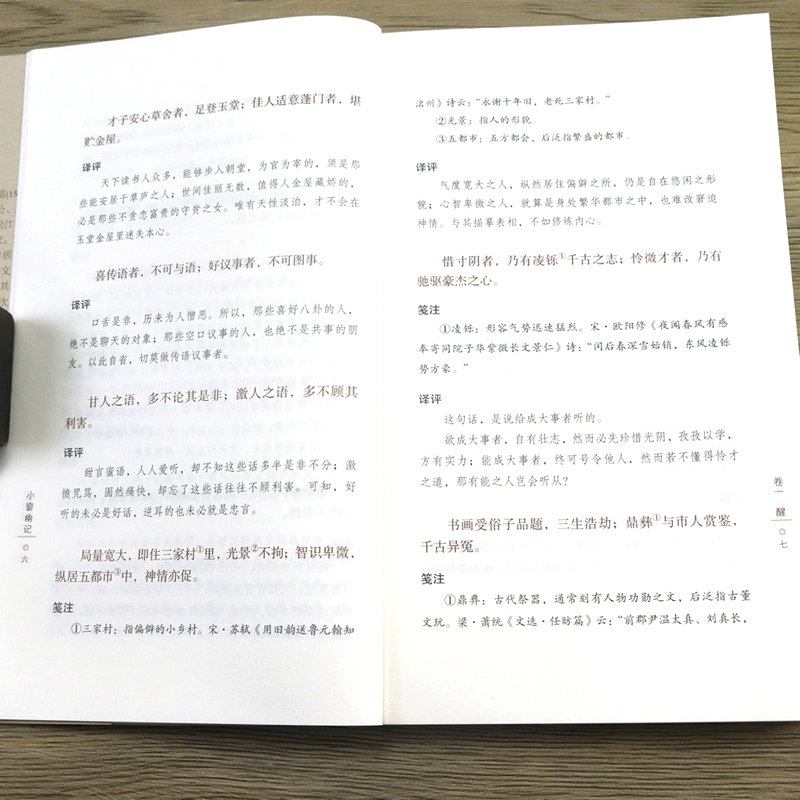 才子安心草舍者，足登玉堂；佳人适意蓬门者，堪
贮金屋。
译评
天下读书人众多，能够步入朝堂，为官为宰的，须是那
些能安居于草庐之人；世间佳丽无数，值得人金屋藏娇的，
必是那些不贪恋富贵的守贫之女。唯有天性淡泊，才不会在
玉堂金屋里迷失本心。
喜传语者，不可与语；好议事者，不可图事。
译评
口舌是非，历来为人憎恶。所以，那些喜好八卦的人，
绝不是聊天的对象；那些空口议事的人，也绝不是共事的朋
友。以此自省，切莫做传语议事者。
甘人之语，多不论其是非；激人之语，多不顾其
利害。
译评
甜言蜜语，人人爱听，却不知这些话多半是非不分；激
愤咒骂，固然痛快，却忘了这些话往往不顾利害。可知，好
听的未必是好话，逆耳的也未必就是忠言。
局量宽大，即住三家村①里，光景②不拘；智识卑微，
纵居五都市③中，神情亦促。
笺注
①三家村：指偏僻的小乡村。宋·苏轼《用旧韵送鲁元翰知
小窗幽记
六
洺州》诗云：“永谢十年旧，老死三家村。”
②光景：指人的形貌。
③五都市：五方都会，后泛指繁盛的都市。
译评
气度宽大之人，纵然居住偏僻之所，仍是自在悠闲之形
貌；心智卑微之人，就算是身处繁华都市之中，也难改窘迫
神情。与其描摹表相，不如修炼内心。
惜寸阴者，乃有凌铄①千古之志；怜微才者，乃有
驰驱豪杰之心。
笺注
①凌铄：形容气势迅速猛烈。宋·欧阳修《夜闻春风有感
奉寄同院子华紫微长文景仁》诗：“闰后春深雪始销，东风凌铄
势方豪。”
译评
这句话，是说给成大事者听的。
欲成大事者，自有壮志，然而必先珍惜光阴，孜孜以学，
方有实力；能成大事者，终可号令他人，然而若不懂得怜才
之道，那有能之人岂会听从？
书画受俗子品题，三生浩劫；鼎彝①与市人赏鉴，
千古异冤。
笺注
①鼎彝：古代祭器，通常刻有人物功勋之文，后泛指古董
文玩。梁·萧统《文选·任昉篇》云：“前郡尹温太真、刘真长，
卷一 醒
七